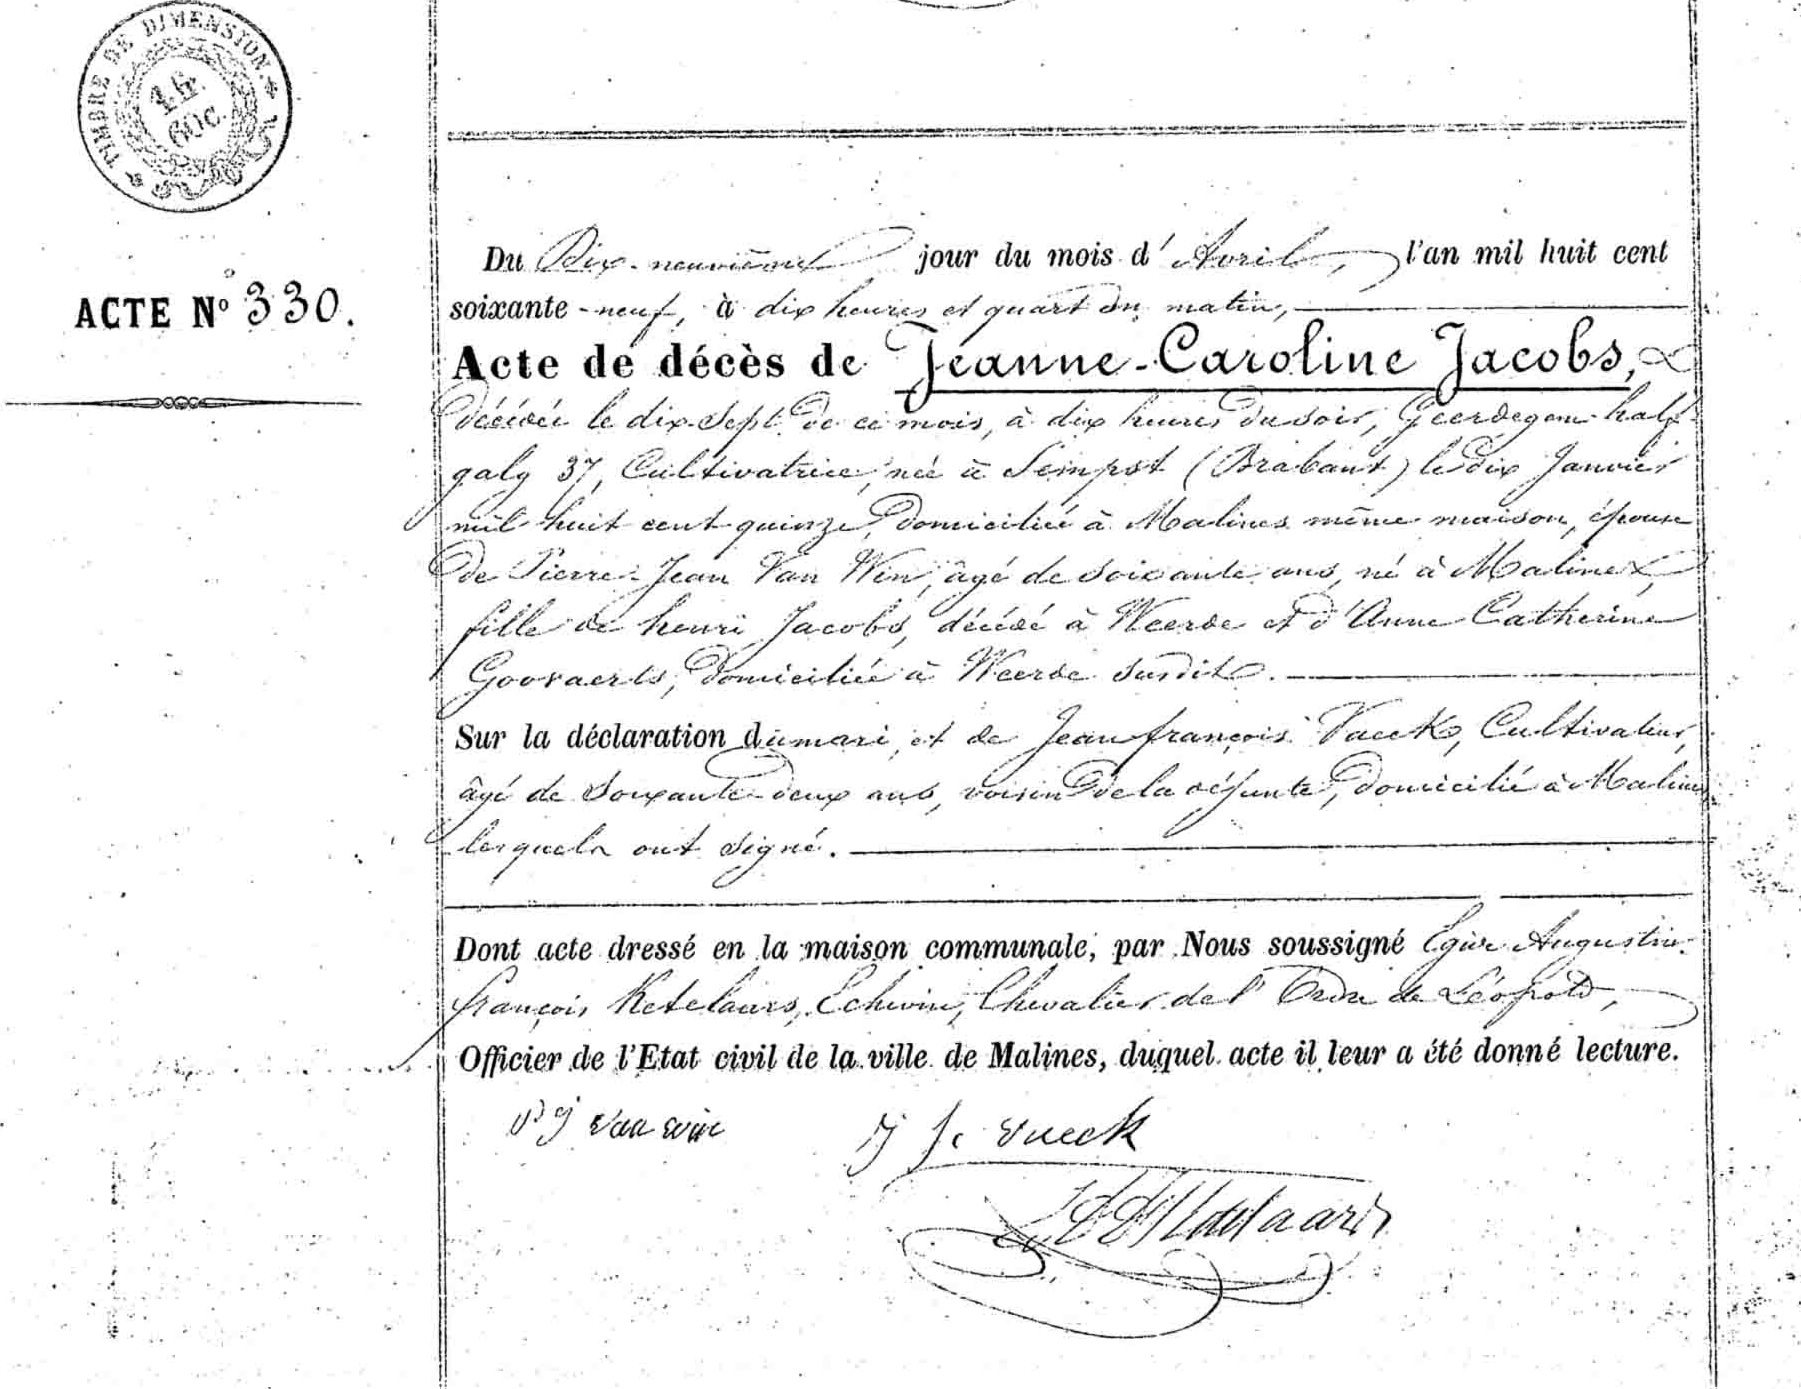 TIMBRE DE DIMENSION
14
60C.
ACTE Nº 330.
Du Dix-neuvième jour du mois d'Avril, l'an mil huit cent
soixante-neuf, à dix heures et quart du matin,
Acte de décès de Jeanne-Caroline Jacobs,
décédée le dix-sept de ce mois, à dix heures du soir, Geerdegem-half
galg 37, Cultivatrice, née à Sempst (Brabant) le dix Janvier
mil huit cent quinze, domiciliée à Malines même maison, épouse
de Pierre-Jean Van Win, âgé de soixante ans, né à Malines,
fille de henri Jacobs, décédé à Weerde et d'Anne Catherine
Goovaerts, domiciliée à Weerde susdit.
Sur la déclaration du mari, et de Jean françois Vueck, Cultivateur,
âgé de soixante-deux ans, voisin de la défunte, domicilié à Malines
lesquels ont signé.
Dont acte dressé en la maison communale, par Nous soussigné Egide Augustin
françois Ketelaars, Echevin, Chevalier de l'Ordre de Léopold,
Officier de l'Etat civil de la ville de Malines, duquel acte il leur a été donné lecture.
van win j f vueck